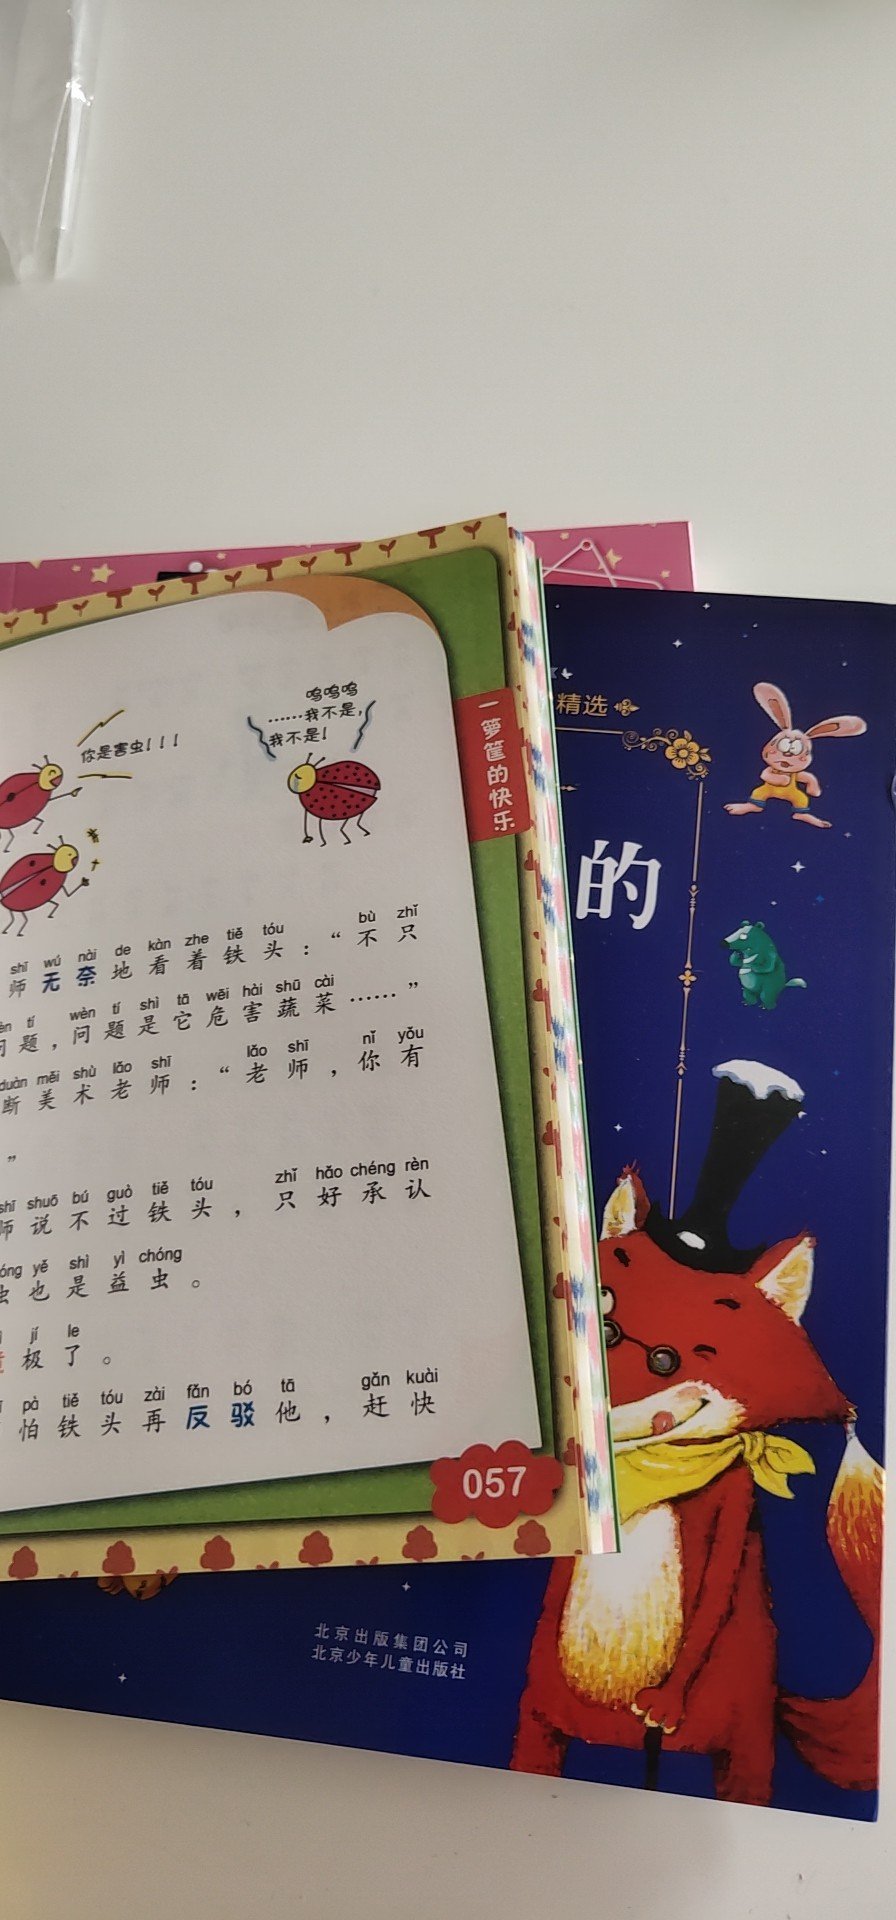 呜呜呜
……我不是，
我不是！
你是害虫！！！
一箩筐的快乐
精选
的
shī wú nài de kàn zhe tiě tóu bù zhǐ
师无奈地看着铁头：“不只
tí wèn tí shì tā wēi hài shū cài
题，问题是它危害蔬菜……”
duàn měi shù lǎo shī lǎo shī nǐ yǒu
断美术老师：“老师，你有
”
shī shuō bú guò tiě tóu zhǐ hǎo chéng rèn
师说不过铁头，只好承认
yě shì yì chóng
虫也是益虫。
jí le
极了。
pà tiě tóu zài fǎn bó tā gǎn kuài
怕铁头再反驳他，赶快
057
北京出版集团公司
北京少年儿童出版社